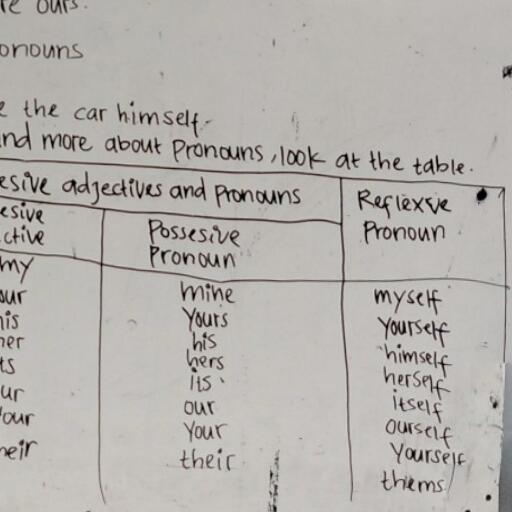 re ours.
onouns
e the car himself.
nd more about pronouns, look at the table.
esive adjectives and pronouns
Reflexsve
Pronoun
esive
ctive
Possesive
Pronoun
my mine myself
our Yours Yourself
his his himself
her hers herself
ts its itself
ur our ourself
Your Your Yourself
heir their thems